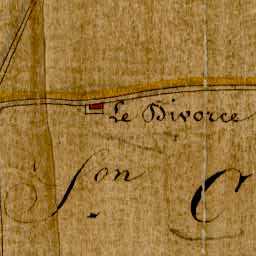 Le Divorce
Son C